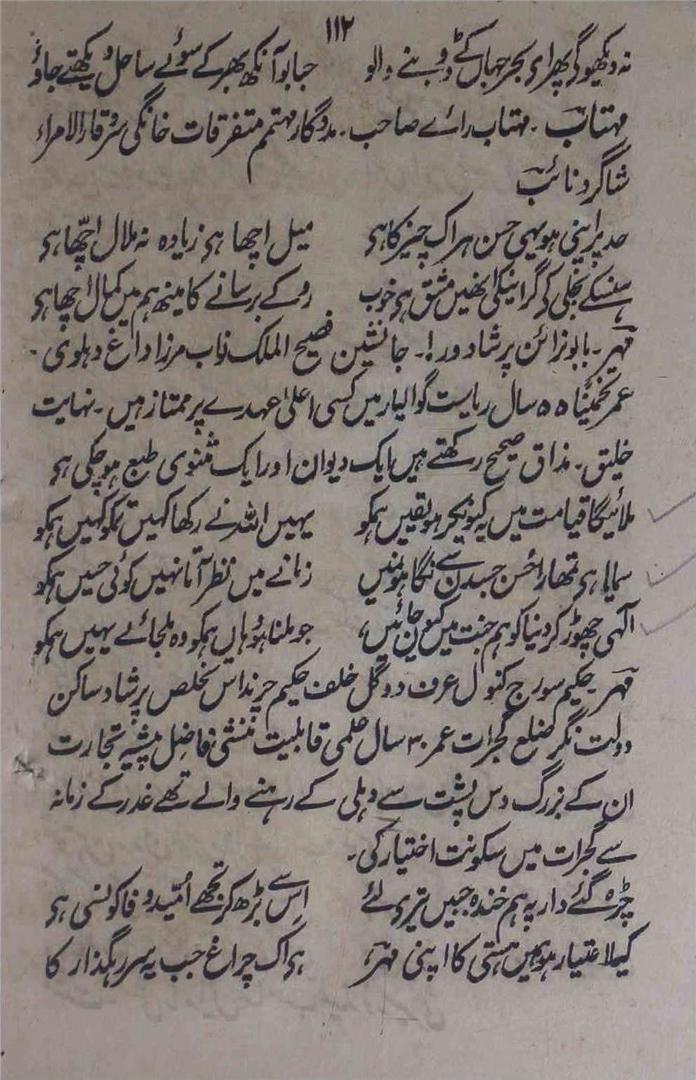 ۱۱۲
نہ دیکھوگے پھر ای بحر جہاں کے ڈوبنے والو حبابو آنکھ بھر کے سوئے ساحل دیکھتے جاؤ
مہتاب ۔ مہتاب رائے صاحب ۔ مددگار مہتمم متفرقات خانگی سر وقار الامراء
شاگرد نائب
حد پر اپنی ہو یہی حسن ہر اک چیز کا ہی میل اچھا ہی زیادہ نہ ملال اچھا ہی
ہنسکے بجلی کی گرانیکی انھیں مشق ہی خوب روکے برسانے کا مینھ ہم میں کمال اچھا ہی
مہر ۔ بابو نرائن پرشاد ورما ۔ جانشین فصیح الملک نواب مرزا داغ دہلوی ۔
عمر تخمیناً ۵۵ سال ریاست گوالیار میں کسی اعلیٰ عہدے پر ممتاز ہیں ۔ نہایت
خلیق ۔ مذاق صحیح رکھتے ہیں ایک دیوان اور ایک مثنوی طبع ہوچکی ہی
ملائیگا قیامت میں یہ کیونکر ہو یقیں ہمکو یہیں اللہ نے رکھا کہیں تمکو کہیں ہمکو
سمایا ہی تمھارا حسن جسدن سے نگاہونمیں زمانے میں نظر آتا نہیں کوئی حسیں ہمکو
الٰہی چھوڑ کر دنیا کو ہم جنت میں کیوں جائیں، جو ملنا ہو وہاں ہمکو وہ ملجائے یہیں ہمکو
مہر حکیم سورج کنول عرف دوگل خلف حکیم ہرنداس تخلص پرشاد ساکن
دولت نگر ضلع گجرات عمر ۳۰ سال علمی قابلیت منشی فاضل پیشہ تجارت
ان کے بزرگ دس پشت سے دہلی کے رہنے والے تھے غدر کے زمانہ
سے گجرات میں سکونت اختیار کی ۔
چڑھ گئے دار پہ ہم خندہ جبیں تیری لئے اس سے بڑھ کر تجھے اُمید وفا کونسی ہی
کیا اعتبار ہو ہمیں ہستی کا اپنی مہر، ہی اک چراغ جب یہ سر رہگذار کا